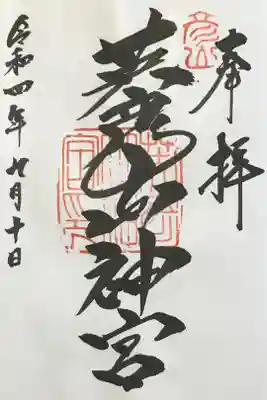 奉拝
英彦山神宮
令和四年九月十日